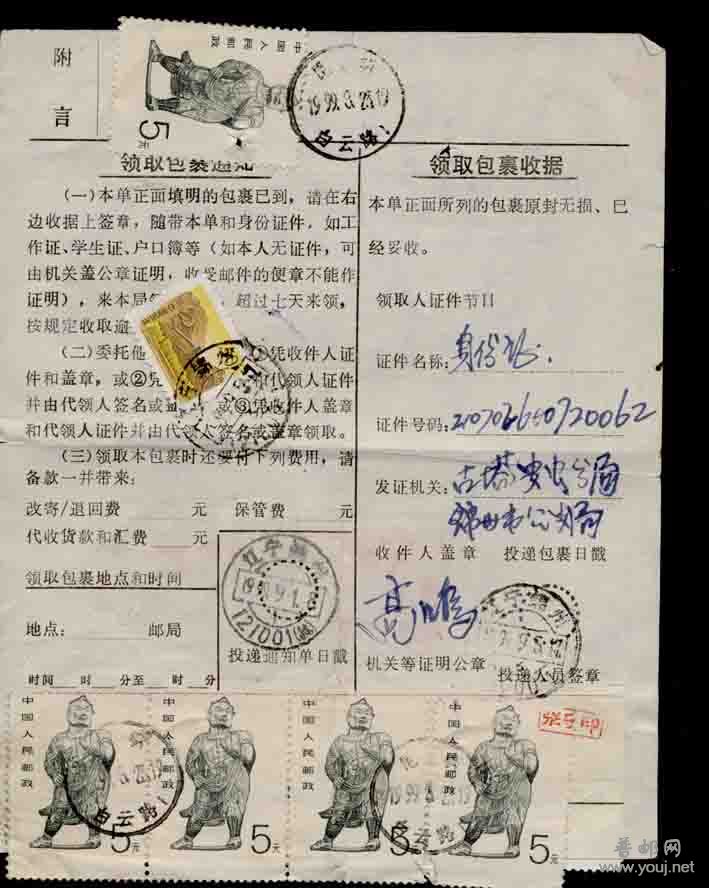 附
言
中国人民邮政
5元
白云路
领取包裹通知
(一)本单正面填明的包裹已到,请在右
边收据上签章,随带本单和身份证件,如工
作证、学生证、户口簿等(如本人无证件,可
由机关盖公章证明,收受邮件的便章不能作
证明),来本局 超过七天来领,
按规定收取逾
(二)委托他 ①凭收件人证
件和盖章,或②凭 和代领人证件
并由代领人签名或 ③凭收件人盖章
和代领人证件并由代领人签名或盖章领取。
(三)领取本包裹时还要付下列费用,请
备款一并带来:
改寄/退回费 元 保管费 元
代收货款和汇费 元
领取包裹地点和时间
地点: 邮局
时间 时 分至 时 分
辽宁锦州
121001
投递通知单日戳
领取包裹收据
本单正面所列的包裹原封无损、巳
经妥收。
领取人证件节目
证件名称:身份证.
证件号码:210702650720062
发证机关:古塔 分局
锦州市公安局
收件人盖章 投递包裹日戳
辽宁锦州
机关等证明公章 投递人员签章
中国人民邮政
5元
中国人民邮政
5元
中国人民邮政
5元
中国人民邮政
5元
白云路
普邮网
www.youj.net